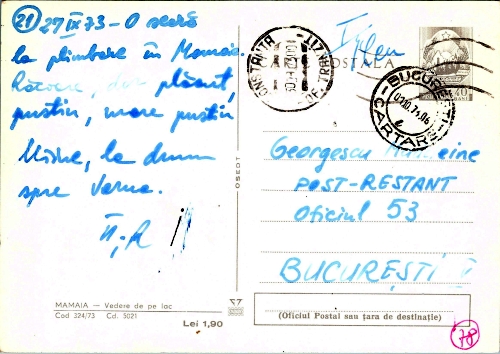 21 27 IX 73 - O seară
la plimbare în Mamaia.
Răcoare, dar plăcut,
pustiu, mare pustiu
Mîine, la drum
spre Varna.
MAMAIA — Vedere de pe lac
Cod 324/73 Cd. 5021
Lei 1,90
OSEDT
CONSTANTA
TRANZIT
POȘTALA
BUCUREȘTI
CARTARE
Georgescu
POST-RESTANT
Oficiul 53
BUCUREȘTI
(Oficiul Postal sau țara de destinație)
78